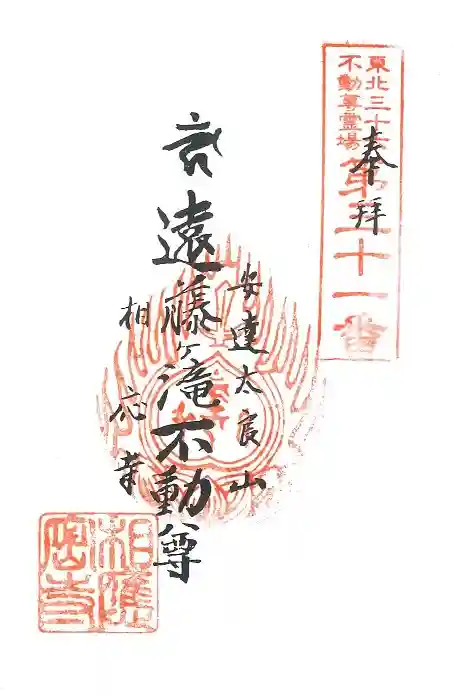 東北三十六
不動尊霊場
第三十一番
奉拝
安達太良山
遠藤ヶ滝不動尊
相応寺
相應寺